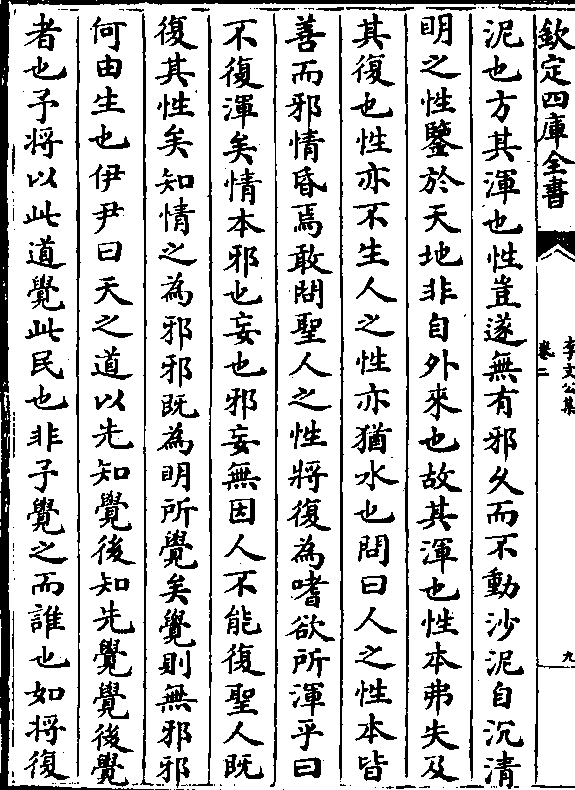 欽定四庫全書
李文公集
卷二
九
泥也方其渾也性豈遂無有邪久而不動沙泥自沉清
明之性鑒於天地非自外來也故其渾也性本弗失及
其復也性亦不生人之性亦猶水也問曰人之性本皆
善而邪情昏焉敢問聖人之性將復為嗜欲所渾乎曰
不復渾矣情本邪也妄也邪妄無因人不能復聖人既
復其性矣知情之為邪邪既為明所覺矣覺則無邪邪
何由生也伊尹曰天之道以先知覺後知先覺覺後覺
者也予將以此道覺此民也非予覺之而誰也如將復